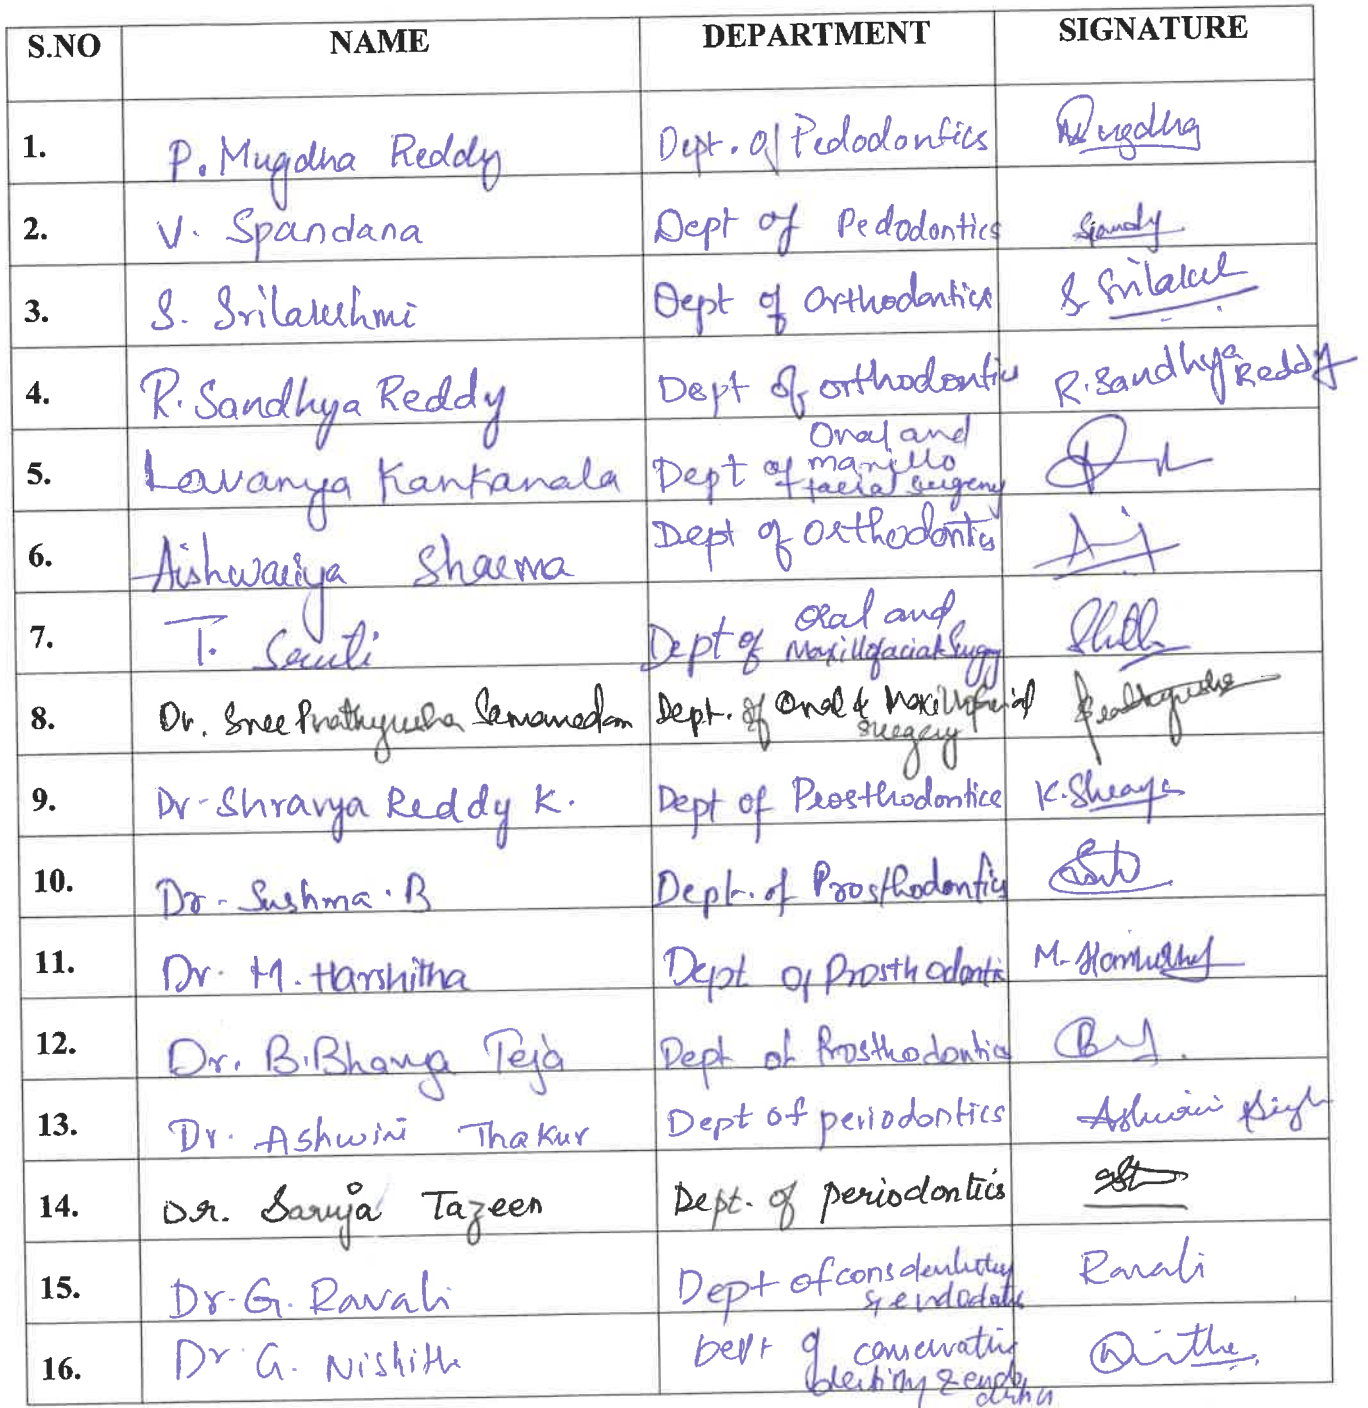 S.NO NAME DEPARTMENT SIGNATURE
1. P. Mugdha Reddy Dept. of Pedodontics Mugdha
2. V. Spandana Dept of Pedodontics
3. S. Srilakshmi Dept of Orthodontics S Srilaksh
4. R. Sandhya Reddy Dept of orthodontics R. Sandhya Reddy
5. Lavanya Kankanala Dept of Oral and
maxillo
facial surgery
6. Aishwariya Sharma Dept of Orthodontics
7. T. Dept of Oral and
Maxillofacial Surgery
8. Dr. Sree Prathyusha Dept. of Oral & Maxillofacial Prathyusha
surgery
9. Dr. Shravya Reddy K. Dept of Prosthodontics K. Shravya
10. Dr. Sushma. B Dept. of Prosthodontics
11. Dr. M. Harshitha Dept of Prosthodontic M.
12. Dr. B. Bhavya Teja Dept of Prosthodontics
13. Dr. Ashwini Thakur Dept of periodontics Ashwini Singh
14. Dr. Tazeen Dept. of periodontics
15. Dr. G. Ravali Dept of cons dentistry Ravali
& endodontics
16. Dr G. Nishith Dept of conservative
dentistry & endo